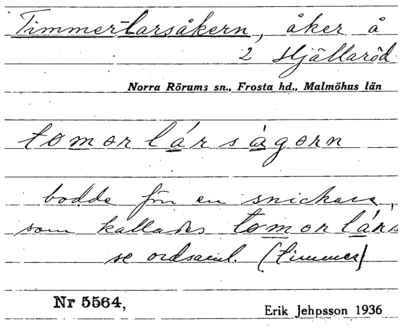 Timmerlarsåkern, åker å
2 Hjällaröd.
Norra Rörums sn., Frosta hd., Malmöhus län
tomorlársågorn
bodde förr en snickare,
som kallades tomorlárs
se ordsaml. (timmer)
Nr 5564,
Erik Jehpsson 1936